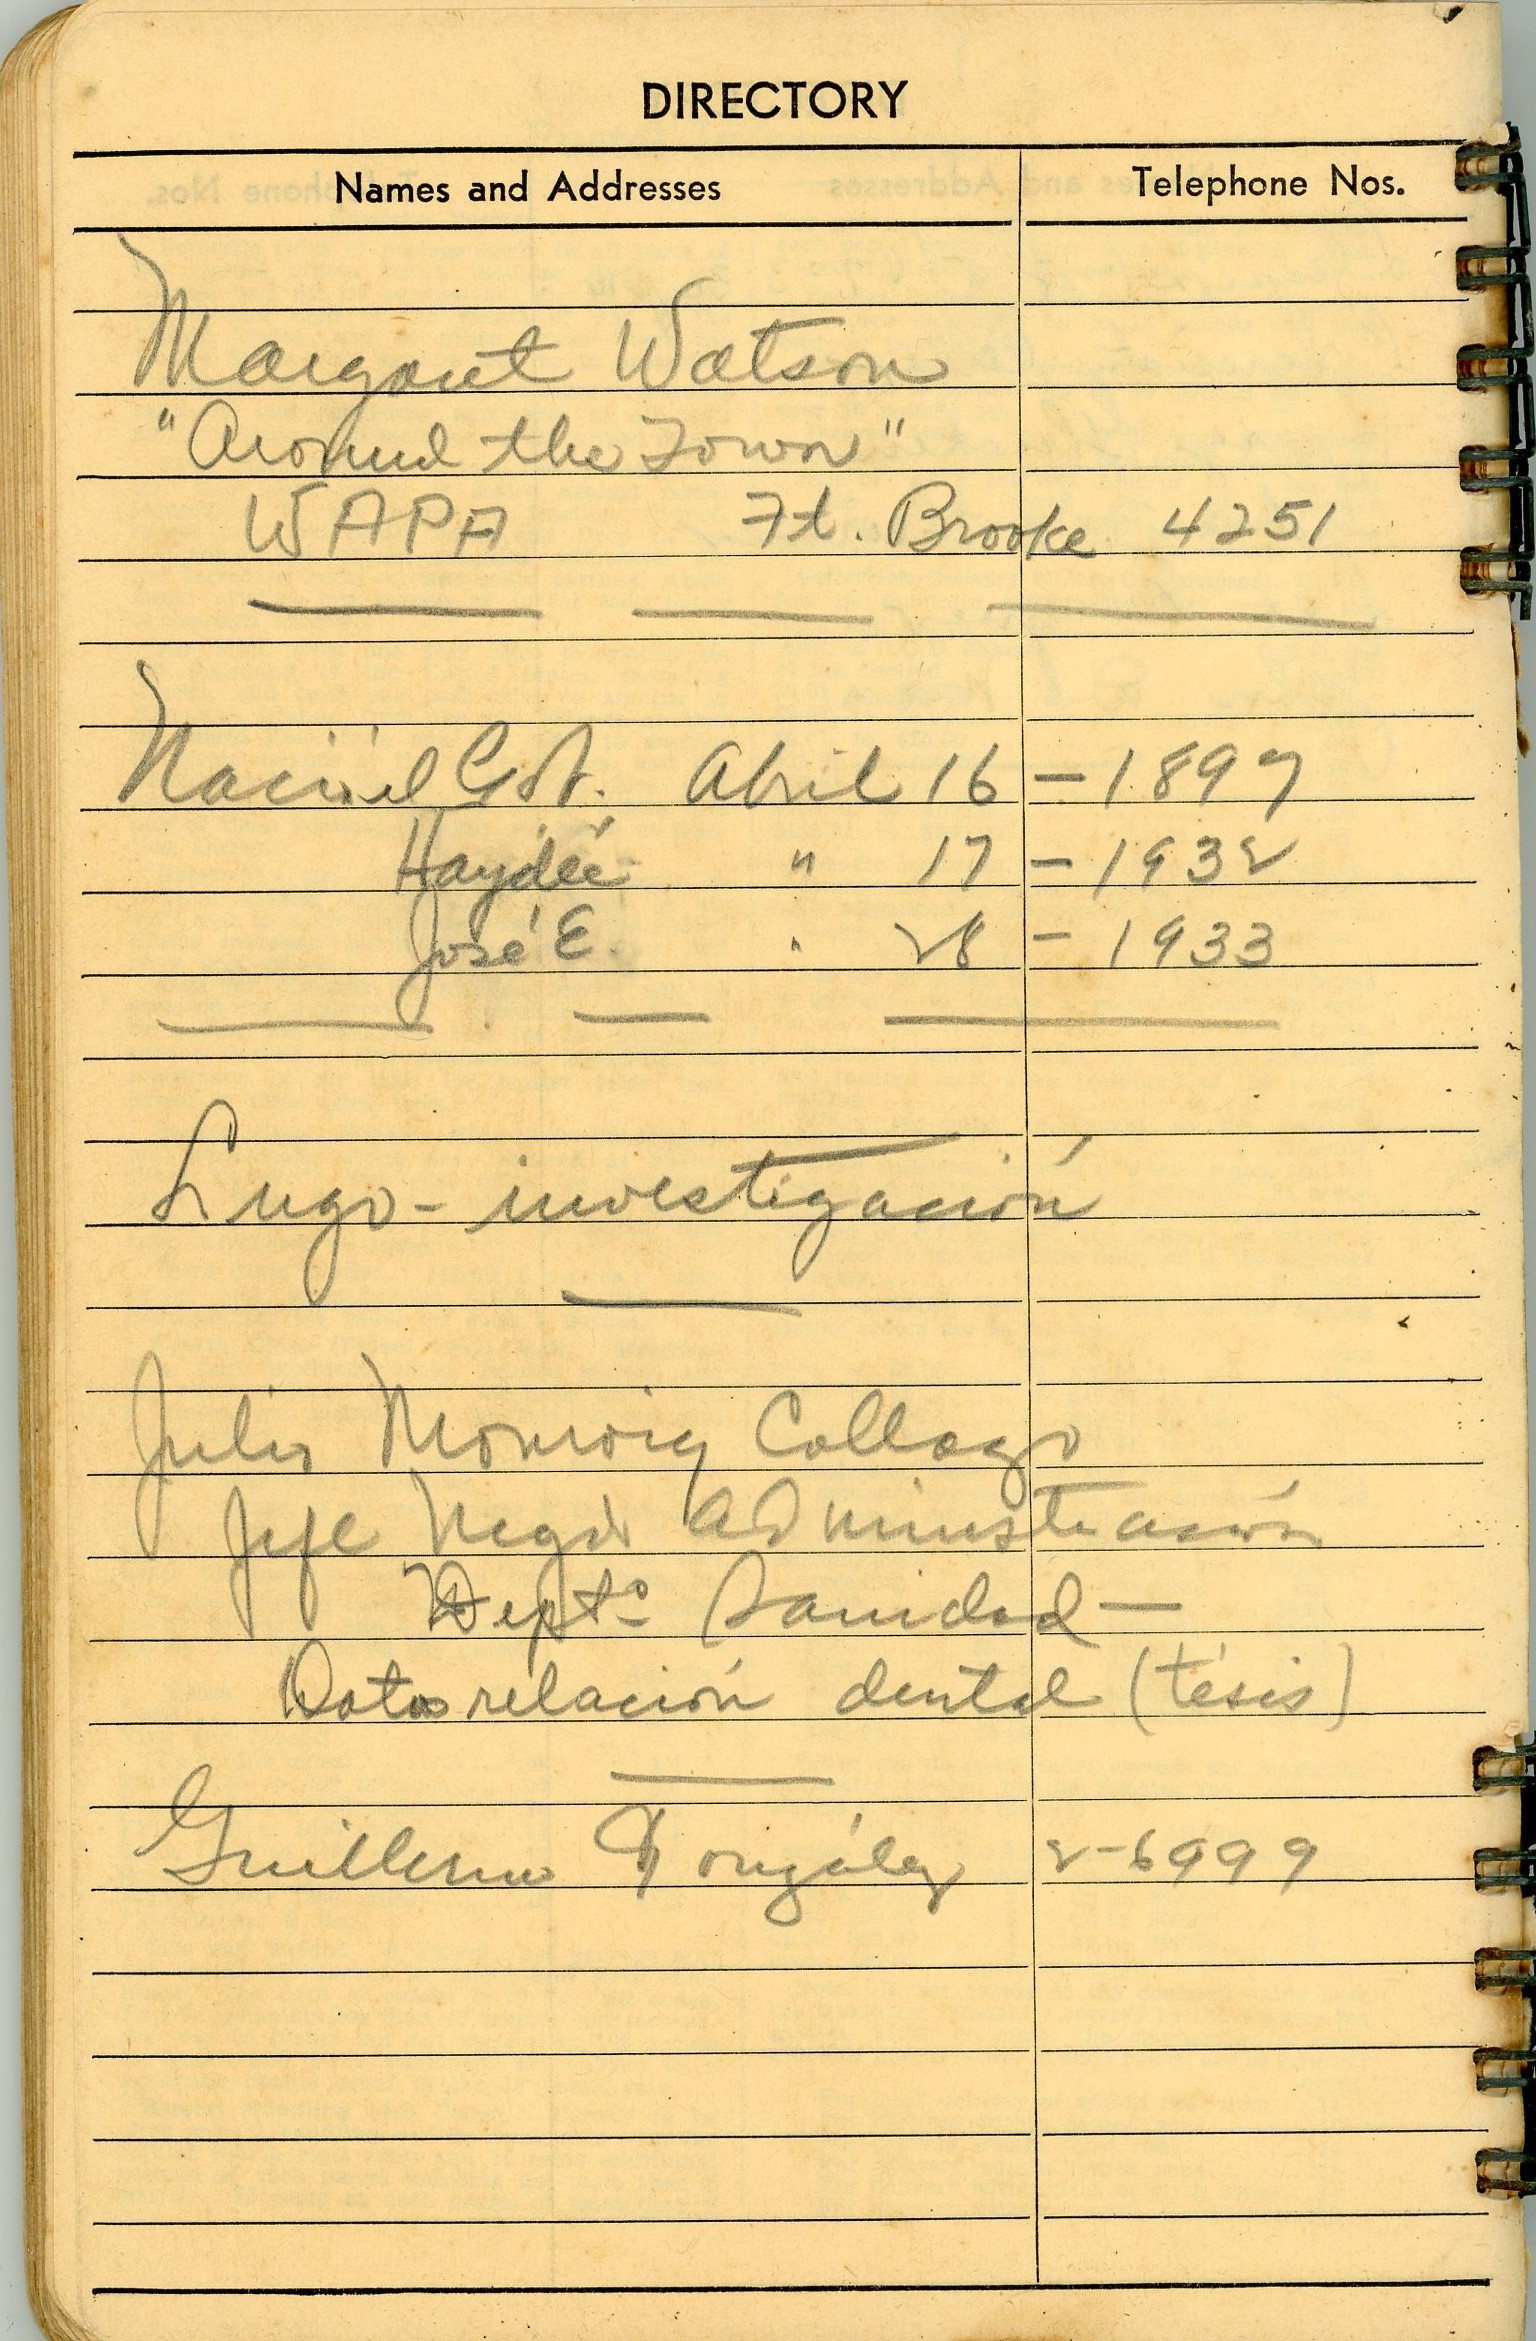 DIRECTORY
Names and Addresses Telephone Nos.
Margaret Watson
"Around the Town"
WAPA Ft. Brooke 4251
Abril 16 - 1897
Haydée " 17 - 1932
José E. " 28 - 1933
Lugo - investigación
Julio Monroig Collazo
Jefe Negdo Administración
Depto Sanidad -
Datos relación dental (tésis)
Guillermo González 2-6999